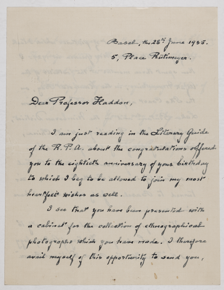 Basel, the 26th June 1935.
5, Place Rütimeyer.
Dear Professor Haddon,
I am just reading in the Literary Guide
of the R.P.A. about the congratulations offered
you to the eightieth anniversary of your birthday
to which I beg to be allowed to join my most
heartfelt wishes as well.
I see that you have been presented with
a cabinet for the collection of ethnographical
photographs which you have made. I therefore
avail myself of this opportunity to send you,